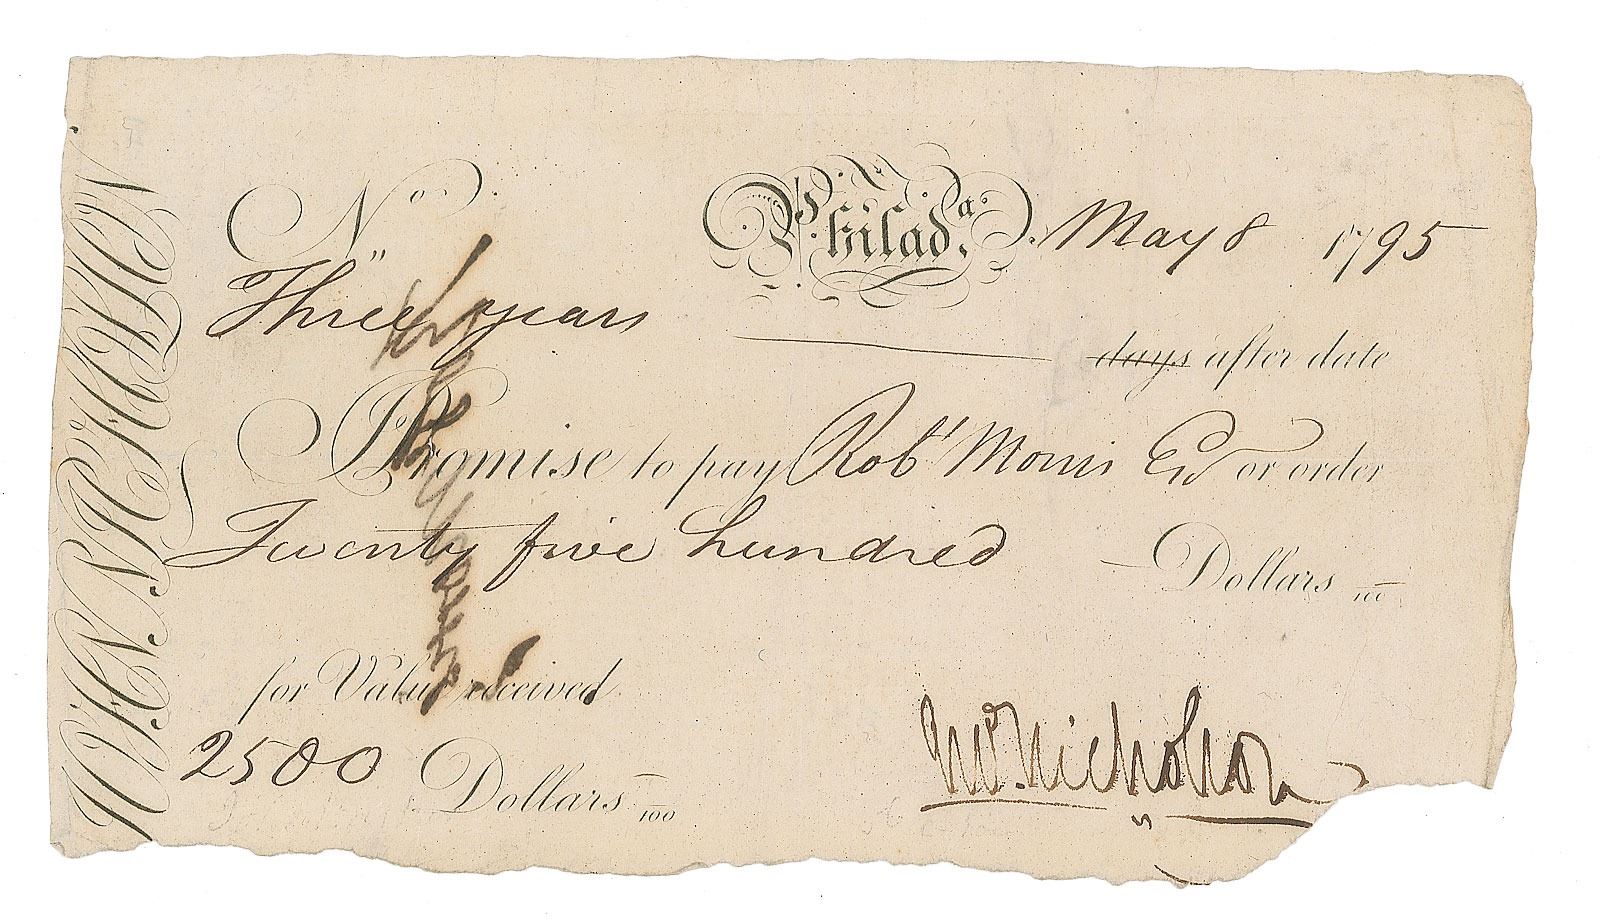 JOHN NICHOLSON
No. Philada. May 8 1795
Three years days after date
I Promise to pay Robt Morris Esq or order
Twenty five hundred Dollars /100
for Value received
2500 Dollars /100
Jno. Nicholson